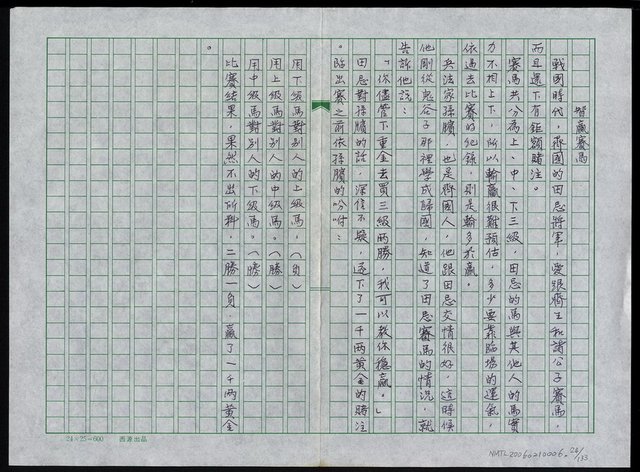 智贏賽馬
戰國時代，齊國的田忌將軍，愛跟齊王和諸公子賽馬，
而且還下有鉅額賭注。
賽馬共分為上、中、下三級，田忌的馬與其他人的馬實
力不相上下，所以輸贏很難預估，多少要靠臨場的運氣，
依過去比賽的紀錄，則是輸多於贏。
兵法家孫臏，也是齊國人，他跟田忌交情很好，這時候
他剛從鬼谷子那裡學成歸國，知道了田忌賽馬的情況，就
告訴他說：
「你儘管下重金去買三級兩勝，我可以教你穩贏。」
田忌對孫臏的話，深信不疑，還下了一千兩黃金的賭注
。臨出賽之前依孫臏的吩咐：
用下級馬對別人的上級馬，（負）
用上級馬對別人的中級馬。（勝）
用中級馬對別人的下級馬。（勝）
比賽結果，果然不出所料，二勝一負，贏了一千兩黃金
。
24×25=600 西源出品
NMTL20060210006.24/133